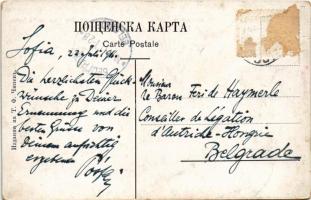 ПОЩЕНСКА КАРТА
Carte Postale
Sofia, 22 Juli
Die herzlichsten Glück-
wünsche zu Deiner
Ernennung und die
besten Grüsse von
Deinem aufrichtig
ergebenen
Monsieur
le Baron Feri de Haymerle
Conseiller de Légation
d'Autriche-Hongrie
Belgrade